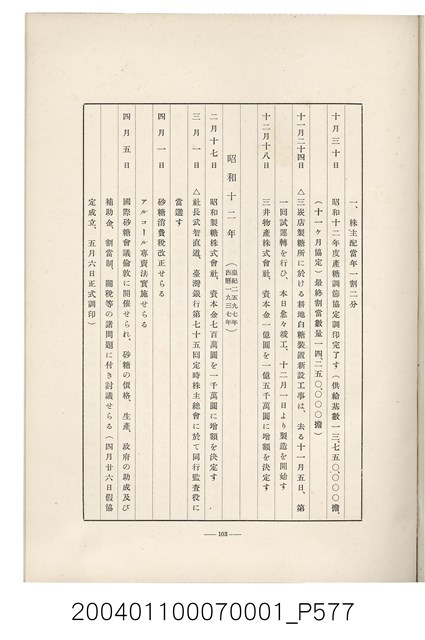 一、株主配當年一割二分
十月三十日　昭和十二年度產糖調節協定調印完了す（供給基數一三、七五〇、〇〇〇擔、
（十一ヶ月協定）最終割當數量一四、二五〇、〇〇〇擔）
十一月二十四日　△三崁店製糖所に於ける耕地白糖裝置新設工事は、去る十一月五日、第
一回試運轉を行ひ、本日愈々竣工、十二月一日より製造を開始す
十二月十八日　三井物產株式會社、資本金一億圓を一億五千萬圓に增額を決定す
昭和十二年（皇紀二五九七年 西曆一九三七年）
二月十七日　昭和製糖株式會社、資本金七百萬圓を一千萬圓に增額を決定す
三月一日　△社長武智直道、臺灣銀行第七十五回定時株主總會に於て同行監査役に
當選す
四月一日　砂糖消費稅改正せらる
アルコール專賣法實施せらる
四月五日　國際砂糖會議倫敦に開催せられ、砂糖の價格、生產、政府の助成及び
補助金、割當制、關稅等の諸問題に付き討議せらる（四月廿六日假協
定成立、五月六日正式調印）
103
200401100070001_P577